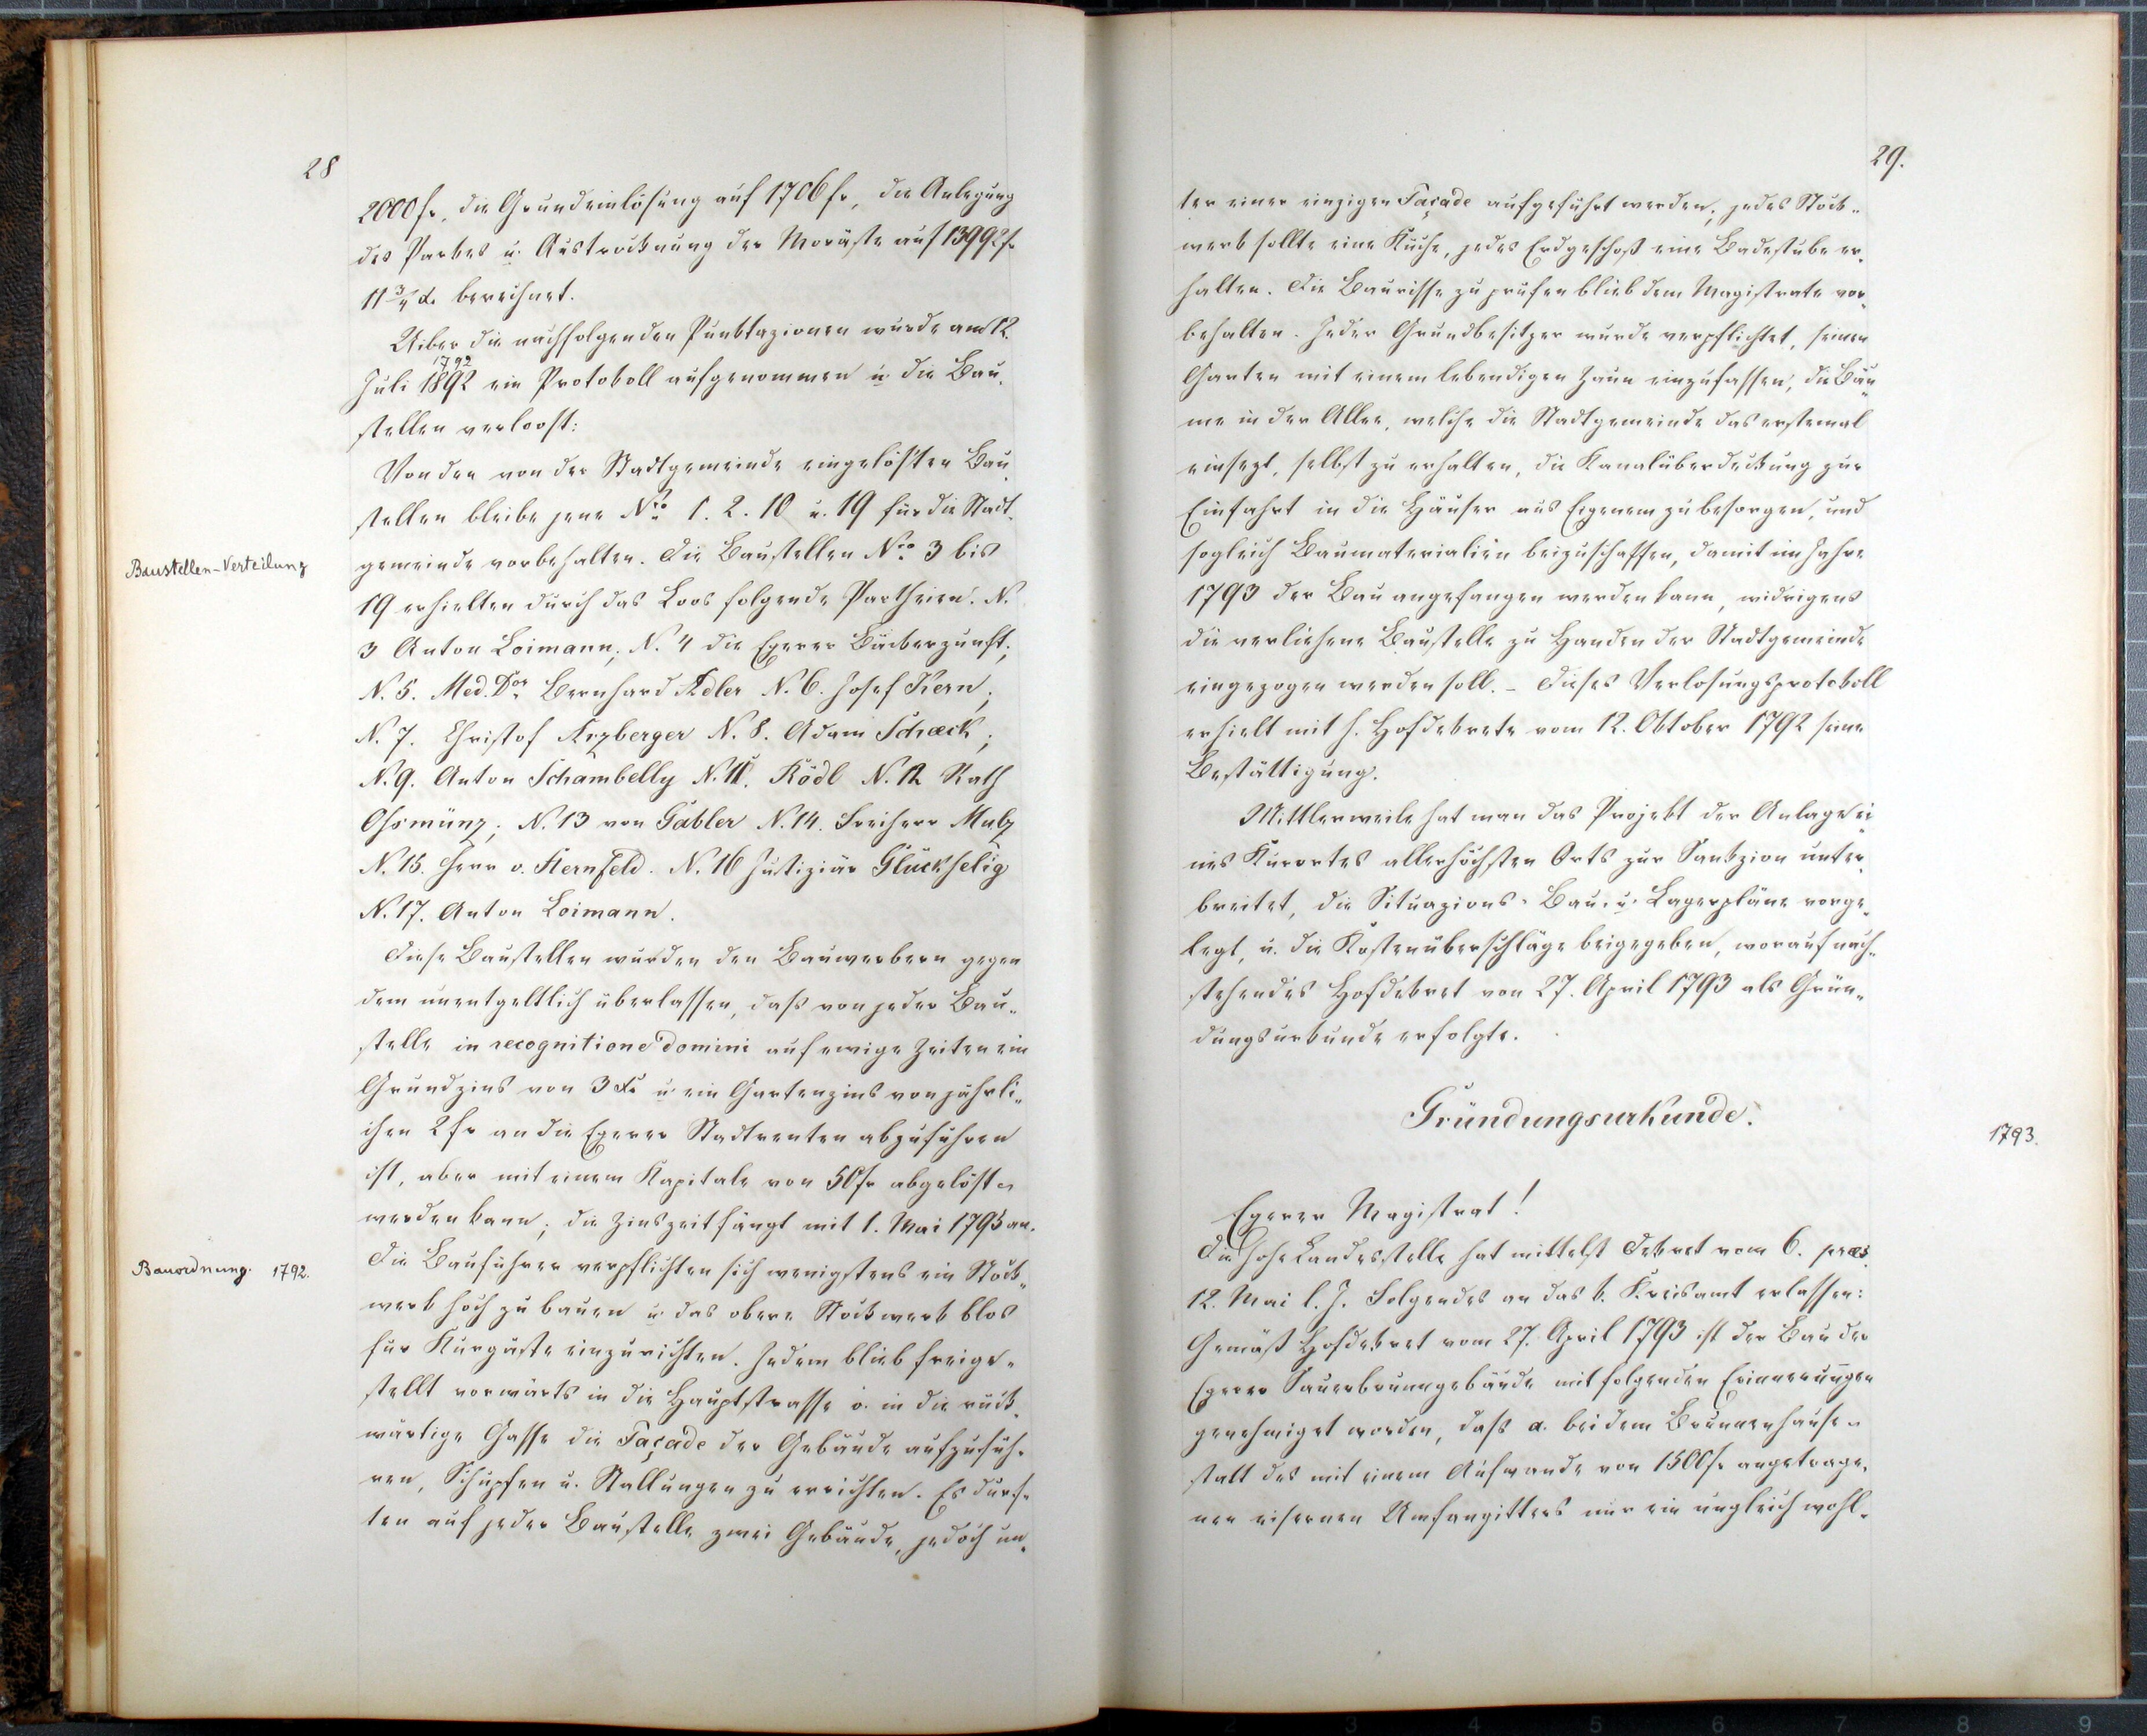 28
2000 fr, die Grundeinlösung auf 1706 fr, die Anlegung
des Parkes u. Austrocknung der Moräste auf 13992 fr
11 3/4 x. berechnet.
Uiber die nachfolgenden Punktazionen wurde am 12.
1792
Juli 1892 ein Protokoll aufgenommen u. die Bau-
stellen verloost:
Von den von der Stadtgemeinde eingelösten Bau-
stellen bleibe jene Nro 1. 2. 10 u. 19 für die Stadt-
Baustellen-Verteilung
gemeinde vorbehalten. Die Baustellen Nro 3 bis
19 erhielten durch das Loos folgende Partheien. N.
3 Anton Loimann; N. 4 die Egerer Bäckerzunft;
N. 5. Med. Dor Bernhard Adler N. 6. Josef Kern;
N. 7. Christof Arzberger N. 8. Adam Schæck;
N. 9. Anton Schambelly N. 11. Rödl N. 12 Rath
Ohsmünz; N. 13 von Gabler N. 14. Freiherr Mulz
N. 15. Herr v. Sternfeld. N. 16 Justiziär Glückselig
N. 17. Anton Loimann.
Diese Baustellen wurden den Bauwerbern gegen
dem unentgeltlich überlassen, daß von jeder Bau-
stelle in recognitione domini auf ewige Zeiten ein
Grundzins von 3 x u. ein Gartenzins von jährli-
chen 2 fr an die Egerer Stadtrenten abzuführen
ist, aber mit einem Kapitale von 50 fr abgelöst
werden kann; die Zinszeit fängt mit 1. Mai 1795 an.
Bauordnung. 1792.
Die Bauführer verpflichten sich wenigstens ein Stock-
werk hoch zu bauen u. das obere Stockwerk blos
für Kurgäste einzurichten. Jedem blieb freige-
stellt vorwärts in die Hauptstrasse o. in die rück-
wärtige Gasse die Façade der Gebäude aufzufüh-
ren, Schupfen u. Stallungen zu errichten. Es durf-
ten auf jeder Baustelle zwei Gebäude, jedoch un-
29.
ter einer einzigen Façade aufgeführt werden; jedes Stock-
werk sollte eine Küche, jedes Erdgeschoß eine Badestube er-
halten. Die Baurisse zu prüfen blieb dem Magistrate vor-
behalten. Jeder Grundbesitzer wurde verpflichtet, seinen
Garten mit einem lebendigen Zaun einzufassen, die Bäu-
me in der Allee, welche die Stadtgemeinde das erstemal
einsezt, selbst zu erhalten, die Kanalüberdeckung zur
Einfahrt in die Häuser aus Eigenem zu besorgen, und
sogleich Baumaterialien beizuschaffen, damit im Jahre
1793 der Bau angefangen werden kann, widrigens
die verliehene Baustelle zu Handen der Stadtgemeinde
eingezogen werden soll. – Dieses Verlosungsprotokoll
erhielt mit h. Hofdekrete vom 12. Oktober 1792 seine
Bestättigung.
Mittlerweile hat man das Projekt der Anlage ei-
nes Kurortes allerhöchsten Orts zur Sankzion unter-
breitet, die Situazions- Bau- u. Lagerpläne vorge-
legt, u. die Kostenüberschläge beigegeben, worauf nach-
stehendes Hofdekret von 27. April 1793 als Grün-
dungsurkunde erfolgte.
Gründungsurkunde.
1793.
Egerer Magistrat!
Die hohe Landesstelle hat mittelst Dekret vom 6. præs.
12. Mai l. J. Folgendes an das k. Kreisamt erlassen:
Gemäß Hofdekret vom 27. April 1793 ist der Bau der
Egerer Sauerbrunngebäude mit folgenden Erinnerungen
genehmiget worden, daß a. bei dem Brunnenhause
statt des mit einem Aufwande von 1500 fr angetrage-
nen eisernen Umfangitters nur ein ungleich wohl-